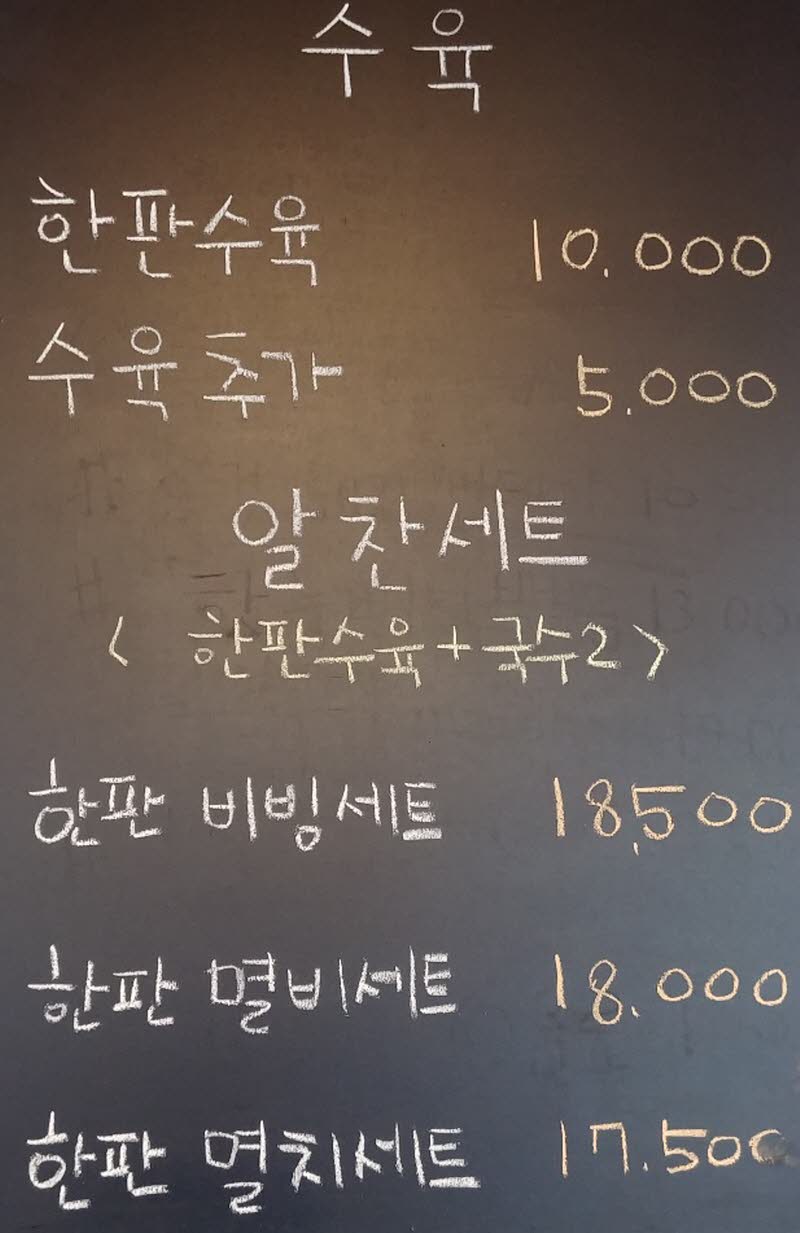 수육
한판수육 10.000
수육 추가 5.000
알찬세트
< 한판수육+국수2 >
한판 비빙세트 18,500
한판 멸비세트 18.000
한판 멸치세트 17.500